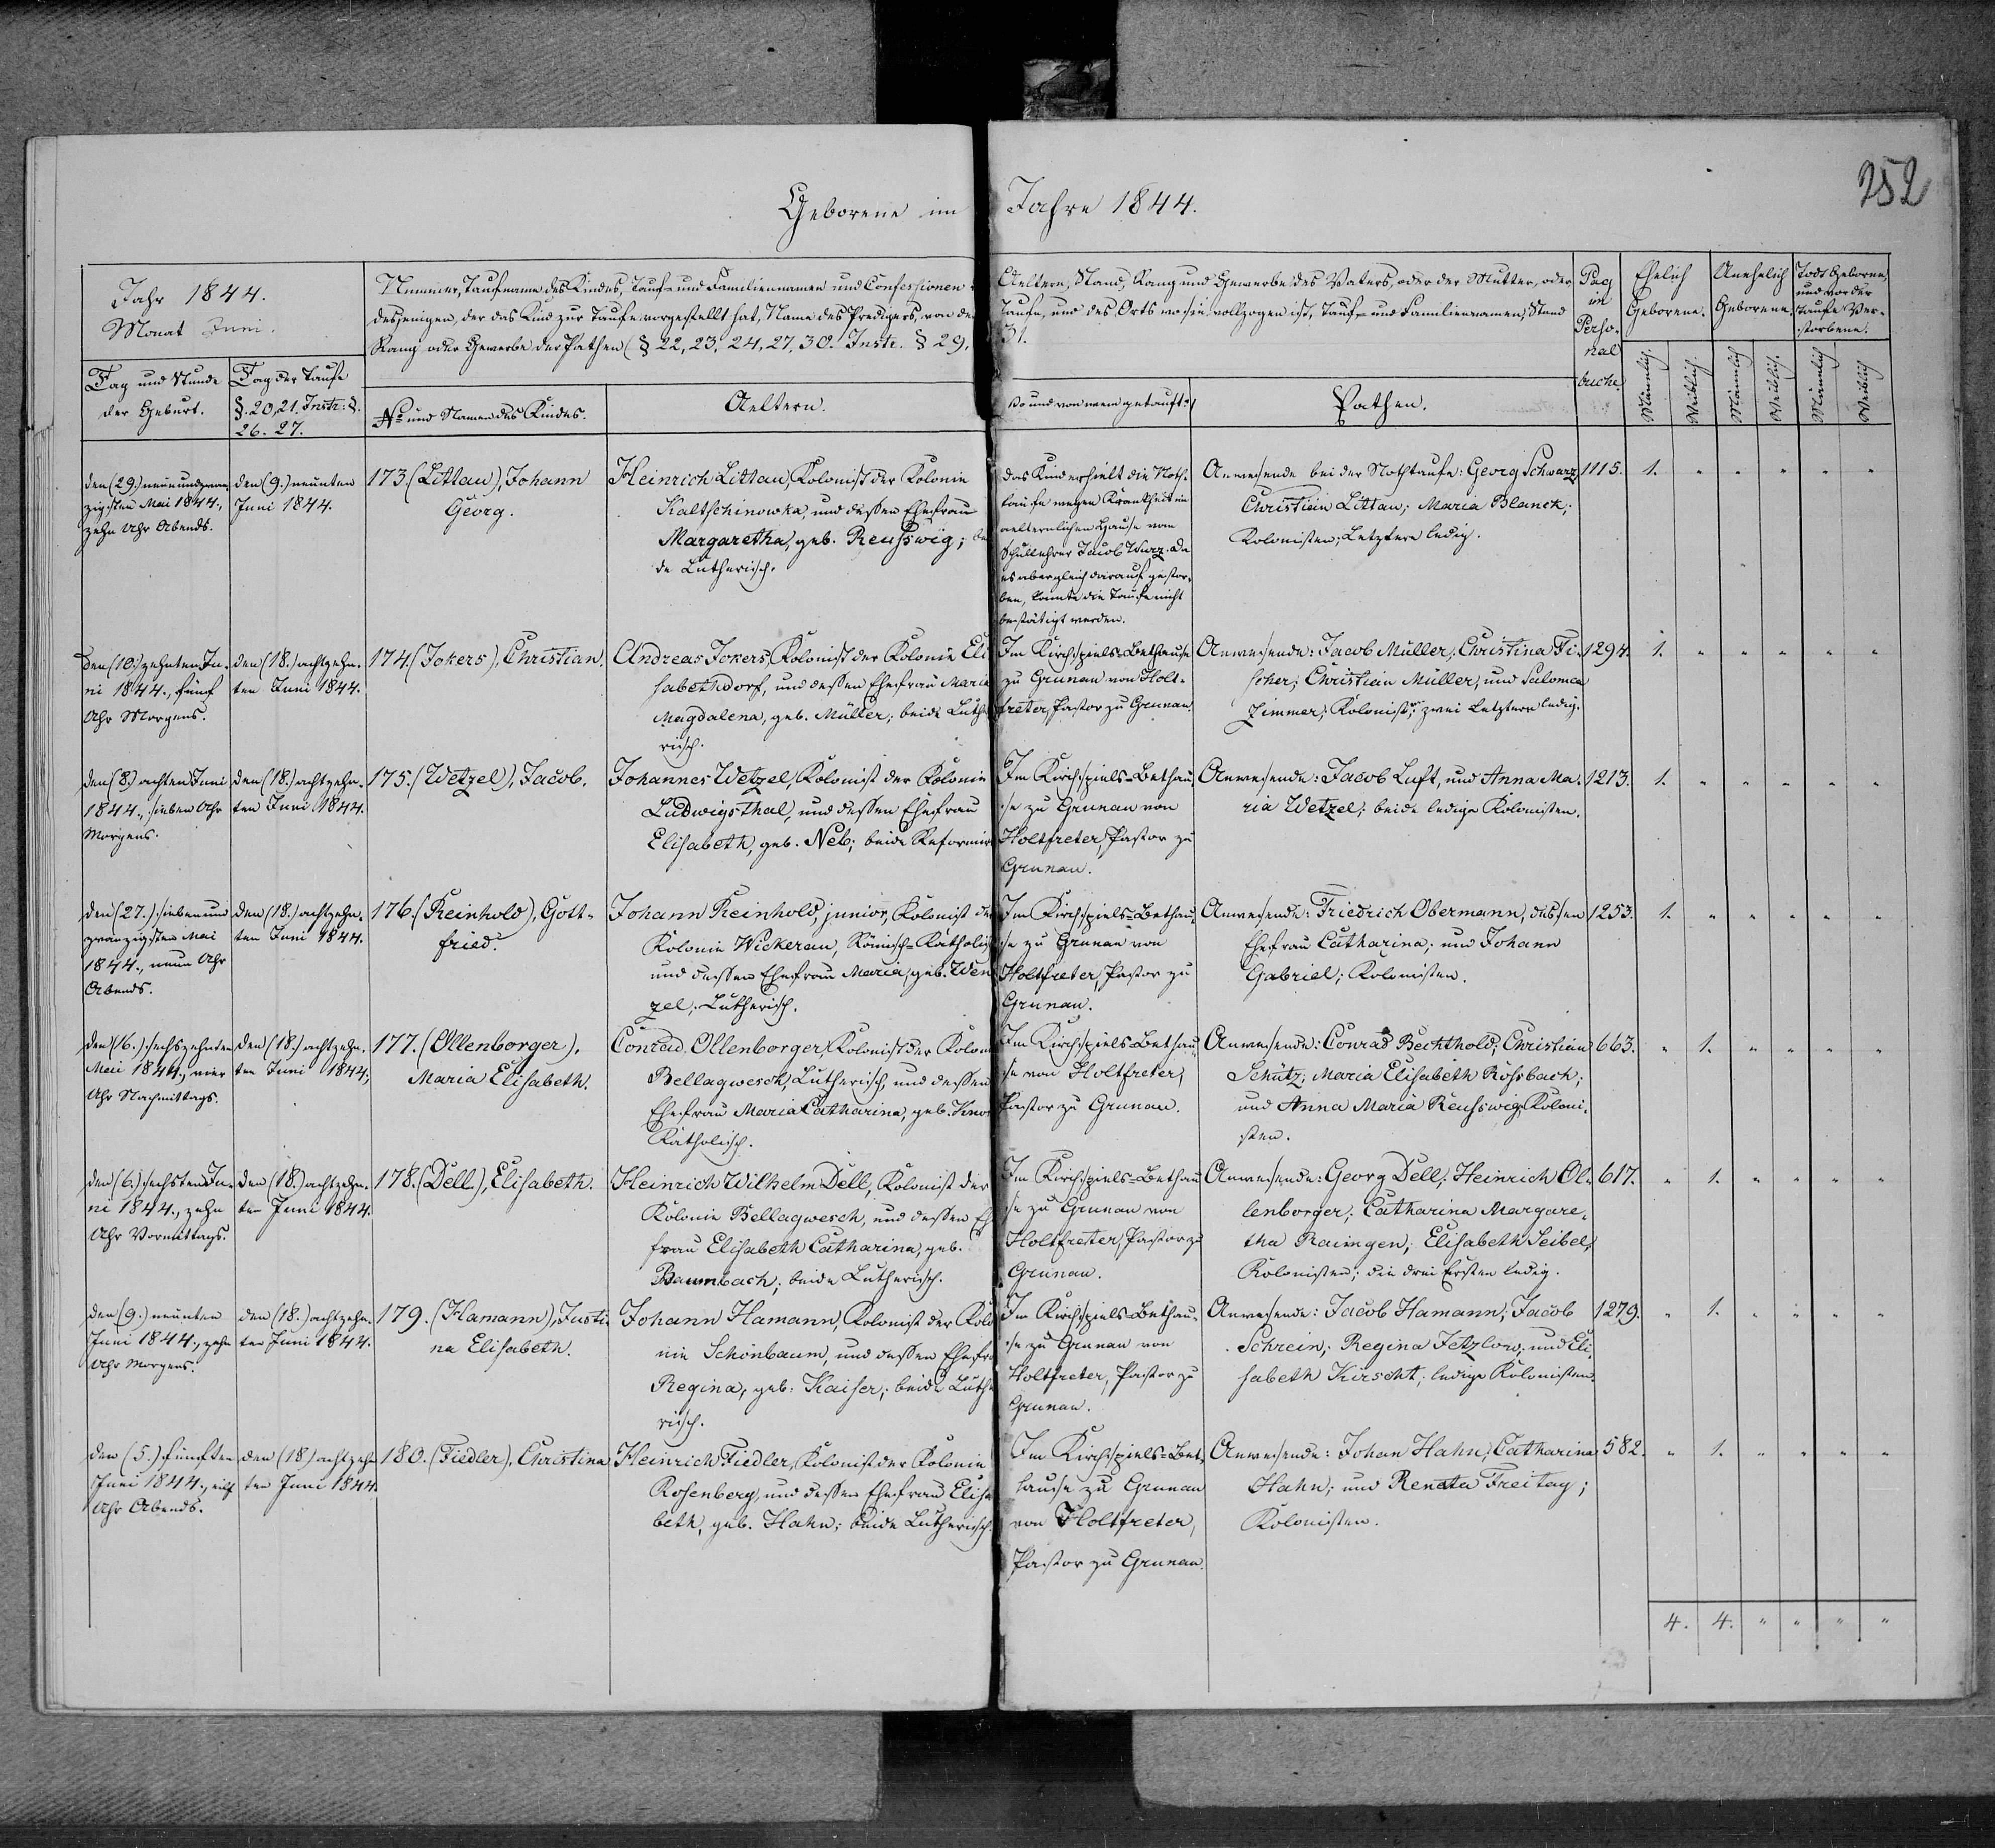 252
Geborene im Jahre 1844.
Jahr 1844.
Monat Juni.
Nummer, Taufname des Kindes, Tauf- und Familiennamen und Confessionen der Aeltern, Stand, Rang und Gewerbe des Vaters, oder der Mutter, oder
desjenigen, der das Kind zur Taufe vorgestellt hat, Name des Predigers, von dem Taufe, und des Orts wo sie vollzogen ist, Tauf- und Familiennamen, Stand
Rang oder Gewerbe der Pathen (§ 22, 23, 24, 27, 30. Instr. § 29, 31.
Pag
in
Perso-
nal
buche.
Ehelich
Geborene.
Unehelich
Geborene.
Todt Geborene,
und vor der
Taufe Ver-
storbene.
Tag und Stunde
der Geburt.
Tag der Taufe
§. 20, 21. Instr: §.
26. 27.
No und Namen des Kindes.
Aeltern.
Wo und von wem getauft.
Pathen.
Männlich.
Weiblich.
Männlich
Weiblich.
Männlich
Weiblich
den (29.) neunundzwan-
zigsten Mai 1844.,
zehn Uhr Abends.
den (9.) neunten
Juni 1844.
173. (Littau), Johann
Georg.
Heinrich Littau, Kolonist der Kolonie
Kaltschinowka, und dessen Ehefrau
Margaretha, geb. Reusswig; bei
de Lutherisch.
das Kind erhielt die Noth-
taufe wegen Krankheit im
aelterlichen Hause vom
Schullehrer Jacob Wurz. Da
es aber gleich darauf gestor-
ben, konnte die Taufe nicht
bestätigt werden.
Anwesende bei der Nothtaufe: Georg Schwarz
Christian Littau; Maria Blanck;
Kolonisten; Letztere ledig.
1115. 1. " " " " "
den (10.) zehnten Ju-
ni 1844., fünf
Uhr Morgens.
den (18.) achtzehn-
ten Juni 1844.
174. (Jokers), Christian.
Andreas Jokers, Kolonist der Kolonie Eli
sabethdorf, und dessen Ehefrau Maria
Magdalena, geb. Müller; beide Luthe
risch.
Im Kirchspiels-Bethause
zu Grunau von Holt-
freter, Pastor zu Grunau.
Anwesende: Jacob Müller, Christina Fi-
scher; Christian Müller, und Saloméa
Zimmer; Kolonist; zwei Letztere ledig.
1294. 1. " " " " "
den (8.) achten Juni
1844., sieben Uhr
Morgens.
den (18.) achtzehn-
ten Juni 1844.
175. (Wetzel), Jacob.
Johannes Wetzel, Kolonist der Kolonie
Ludwigsthal, und dessen Ehefrau
Elisabeth, geb. Neb; beide Reformir
Im Kirchspiels-Bethau-
se zu Grunau von
Holtfreter, Pastor zu
Grunau.
Anwesende: Jacob Luft, und Anna Ma-
ria Wetzel; beide ledige Kolonisten.
1213. 1. " " " " "
den (27.) sieben und
zwanzigsten Mai
1844., neun Uhr
Abends.
den (18.) achtzehn-
ten Juni 1844.
176. (Reinhold), Gott-
fried.
Johann Reinhold, junior, Kolonist der
Kolonie Wickerau, Römisch-Katholisch
und dessen Ehefrau Maria, geb. Wen
zel; Lutherisch.
Im Kirchspiels-Bethau-
se zu Grunau von
Holtfreter, Pastor zu
Grunau.
Anwesende: Friedrich Obermann, dessen
Ehefrau Catharina; und Johann
Gabriel; Kolonisten.
1253. 1. " " " " "
den (16.) sechszehnten
Mai 1844., vier
Uhr Nachmittags.
den (18.) achtzehn-
ten Juni 1844.
177. (Ollenborger),
Maria Elisabeth.
Conrad Ollenborger, Kolonist der Kolon
Bellagwesch, Lutherisch, und dessen
Ehefrau Maria Catharina, geb.
Katholisch.
Im Kirchspiels-Bethau-
se von Holtfreter,
Pastor zu Grunau.
Anwesende: Conrad Bechthold; Christian
Schütz; Maria Elisabeth Rossbach;
und Anna Maria Reusswig, Koloni-
sten.
663. " 1. " " " "
den (6.) sechsten Ju-
ni 1844., zehn
Uhr Vormittags.
den (18.) achtzehn-
ten Juni 1844.
178. (Dell), Elisabeth.
Heinrich Wilhelm Dell, Kolonist der
Kolonie Bellagwesch, und dessen Eh
frau Elisabeth Catharina, geb.
Baumbach; beide Lutherisch.
Im Kirchspiels-Bethau
se zu Grunau von
Holtfreter, Pastor zu
Grunau.
Anwesende: Georg Dell; Heinrich Ol-
lenborger; Catharina Margare-
tha Raimgen; Elisabeth Seibel,
Kolonisten; die drei Ersten ledig.
617. " 1. " " " "
den (9.) neunten
Juni 1844., zehn
Uhr Morgens.
den (18.) achtzehn-
ten Juni 1844.
179. (Hamann), Justi
na Elisabeth.
Johann Hamann, Kolonist der Kolo
nie Schönbaum, und dessen Ehefra
Regina, geb. Kaiser; beide Luthe
risch.
Im Kirchspiels-Bethau-
se zu Grunau von
Holtfreter, Pastor zu
Grunau.
Anwesende: Jacob Hamann; Jacob
Schrein; Regina Fetzlow; und Eli-
sabeth Kirscht; ledige Kolonisten.
1279. " 1. " " " "
den (5.) fünften
Juni 1844., eilf
Uhr Abends.
den (18) achtzehn
ten Juni 1844.
180. (Fiedler), Christina
Heinrich Fiedler, Kolonist der Kolonie
Rosenberg, und dessen Ehefrau Elisa
beth, geb. Hahn; beide Lutherisch.
Im Kirchspiels-Bet-
hause zu Grunau
von Holtfreter,
Pastor zu Grunau.
Anwesende: Johan Hahn; Catharina
Hahn; und Renata Freitag;
Kolonisten.
582. " 1. " " " "
4. 4. " " " "